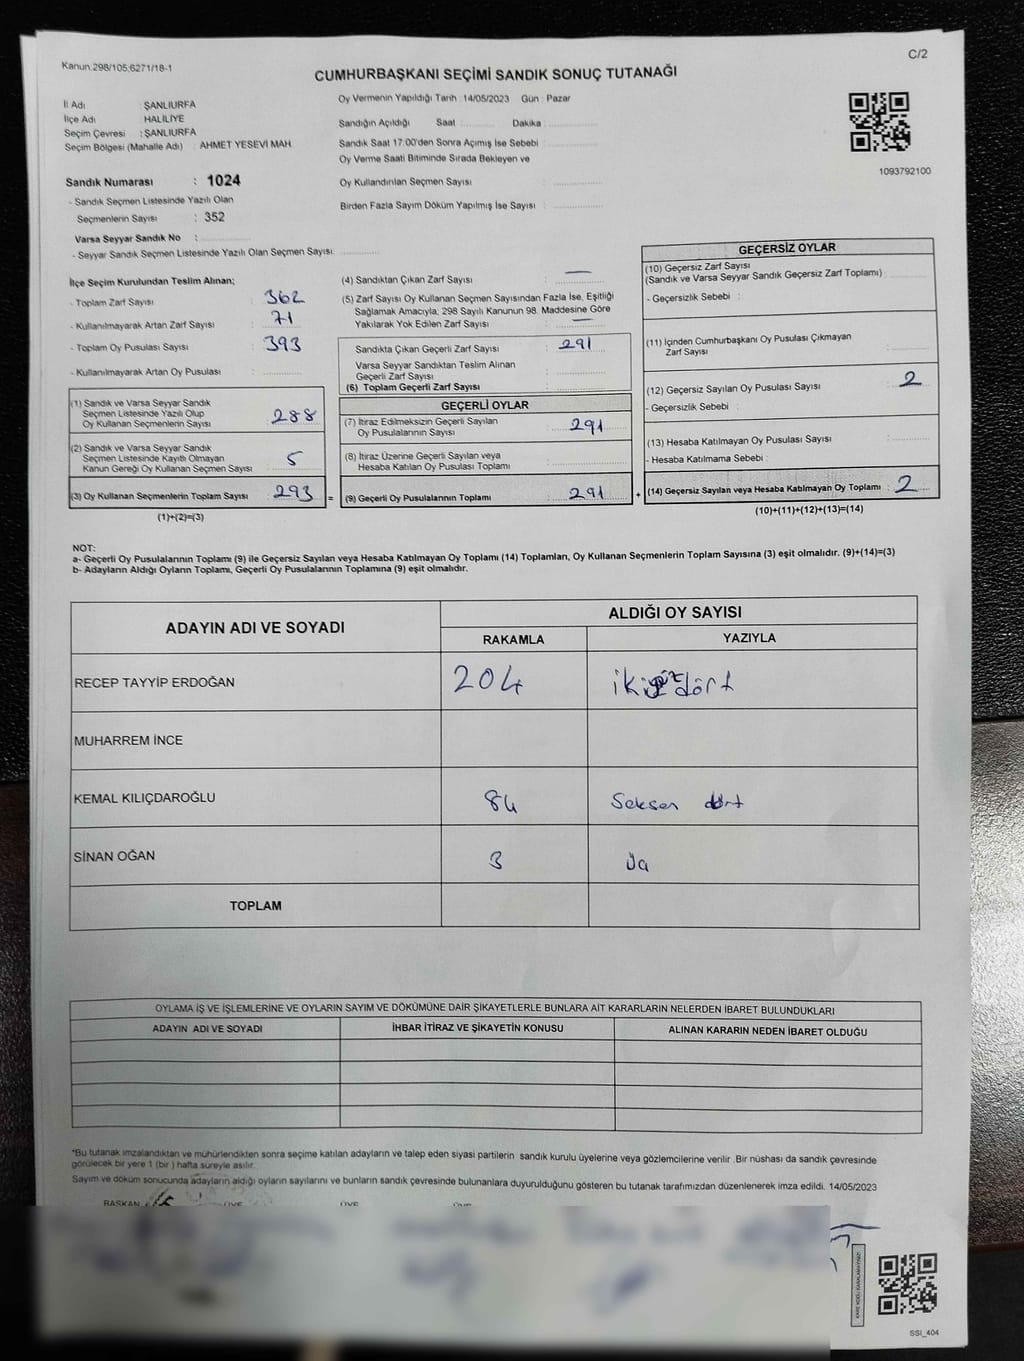 Kanun.298/105;6271/18-1
C/2
CUMHURBAŞKANI SEÇİMİ SANDIK SONUÇ TUTANAĞI
İl Adı : ŞANLIURFA
İlçe Adı HALİLİYE
Seçim Çevresi : ŞANLIURFA
Seçim Bölgesi (Mahalle Adı) : AHMET YESEVİ MAH
Sandık Numarası : 1024
- Sandık Seçmen Listesinde Yazılı Olan
Seçmenlerin Sayısı : 352
Varsa Seyyar Sandık No :
- Seyyar Sandık Seçmen Listesinde Yazılı Olan Seçmen Sayısı:
Oy Vermenin Yapıldığı Tarih :14/05/2023 Gün : Pazar
Sandığın Açıldığı Saat Dakika
Sandık Saat 17:00'den Sonra Açımış İse Sebebi
Oy Verme Saati Bitiminde Sırada Bekleyen ve
Oy Kullandırılan Seçmen Sayısı :
Birden Fazla Sayım Döküm Yapılmış İse Sayısı :
1093792100
İlçe Seçim Kurulundan Teslim Alınan;
- Toplam Zarf Sayısı : 362
- Kullanılmayarak Artan Zarf Sayısı 71
- Toplam Oy Pusulası Sayısı : 393
- Kullanılmayarak Artan Oy Pusulası
(1) Sandık ve Varsa Seyyar Sandık
Seçmen Listesinde Yazılı Olup
Oy Kullanan Seçmenlerin Sayısı : 288
(2) Sandık ve Varsa Seyyar Sandık
Seçmen Listesinde Kayıtlı Olmayan
Kanun Gereği Oy Kullanan Seçmen Sayısı 5
(3) Oy Kullanan Seçmenlerin Toplam Sayısı : 293 =
(1)+(2)=(3)
(4) Sandıktan Çıkan Zarf Sayısı : —
(5) Zarf Sayısı Oy Kullanan Seçmen Sayısından Fazla İse, Eşitliği
Sağlamak Amacıyla, 298 Sayılı Kanunun 98. Maddesine Göre
Yakılarak Yok Edilen Zarf Sayısı : —
Sandıkta Çıkan Geçerli Zarf Sayısı : 291
Varsa Seyyar Sandıktan Teslim Alınan
Geçerli Zarf Sayısı
(6) Toplam Geçerli Zarf Sayısı
GEÇERLİ OYLAR
(7) İtiraz Edilmeksizin Geçerli Sayılan
Oy Pusulalarının Sayısı : 291
(8) İtiraz Üzerine Geçerli Sayılan veya
Hesaba Katılan Oy Pusulası Toplamı
(9) Geçerli Oy Pusulalarının Toplamı : 291 +
GEÇERSİZ OYLAR
(10) Geçersiz Zarf Sayısı
(Sandık ve Varsa Seyyar Sandık Geçersiz Zarf Toplamı)
- Geçersizlik Sebebi :
(11) İçinden Cumhurbaşkanı Oy Pusulası Çıkmayan
Zarf Sayısı
(12) Geçersiz Sayılan Oy Pusulası Sayısı : 2
- Geçersizlik Sebebi :
(13) Hesaba Katılmayan Oy Pusulası Sayısı
- Hesaba Katılmama Sebebi :
(14) Geçersiz Sayılan veya Hesaba Katılmayan Oy Toplamı : 2
(10)+(11)+(12)+(13)=(14)
NOT:
a- Geçerli Oy Pusulalarının Toplamı (9) ile Geçersiz Sayılan veya Hesaba Katılmayan Oy Toplamı (14) Toplamları, Oy Kullanan Seçmenlerin Toplam Sayısına (3) eşit olmalıdır. (9)+(14)=(3)
b- Adayların Aldığı Oyların Toplamı, Geçerli Oy Pusulalarının Toplamına (9) eşit olmalıdır.
ADAYIN ADI VE SOYADI
ALDIĞI OY SAYISI
RAKAMLA YAZIYLA
RECEP TAYYİP ERDOĞAN 204 ikiyüzdört
MUHARREM İNCE
KEMAL KILIÇDAROĞLU 84 Seksen dört
SİNAN OĞAN 3 Üç
TOPLAM
OYLAMA İŞ VE İŞLEMLERİNE VE OYLARIN SAYIM VE DÖKÜMÜNE DAİR ŞİKAYETLERLE BUNLARA AİT KARARLARIN NELERDEN İBARET BULUNDUKLARI
ADAYIN ADI VE SOYADI İHBAR İTİRAZ VE ŞİKAYETİN KONUSU ALINAN KARARIN NEDEN İBARET OLDUĞU
*Bu tutanak imzalandıktan ve mühürlendikten sonra seçime katılan adayların ve talep eden siyasi partilerin sandık kurulu üyelerine veya gözlemcilerine verilir .Bir nüshası da sandık çevresinde
görülecek bir yere 1 (bir ) hafta süreyle asılır.
Sayım ve döküm sonucunda adayların aldığı oyların sayılarını ve bunların sandık çevresinde bulunanlara duyurulduğunu gösteren bu tutanak tarafımızdan düzenlenerek imza edildi. 14/05/2023
BAŞKAN ÜYE ÜYE ÜYE
SSI_404